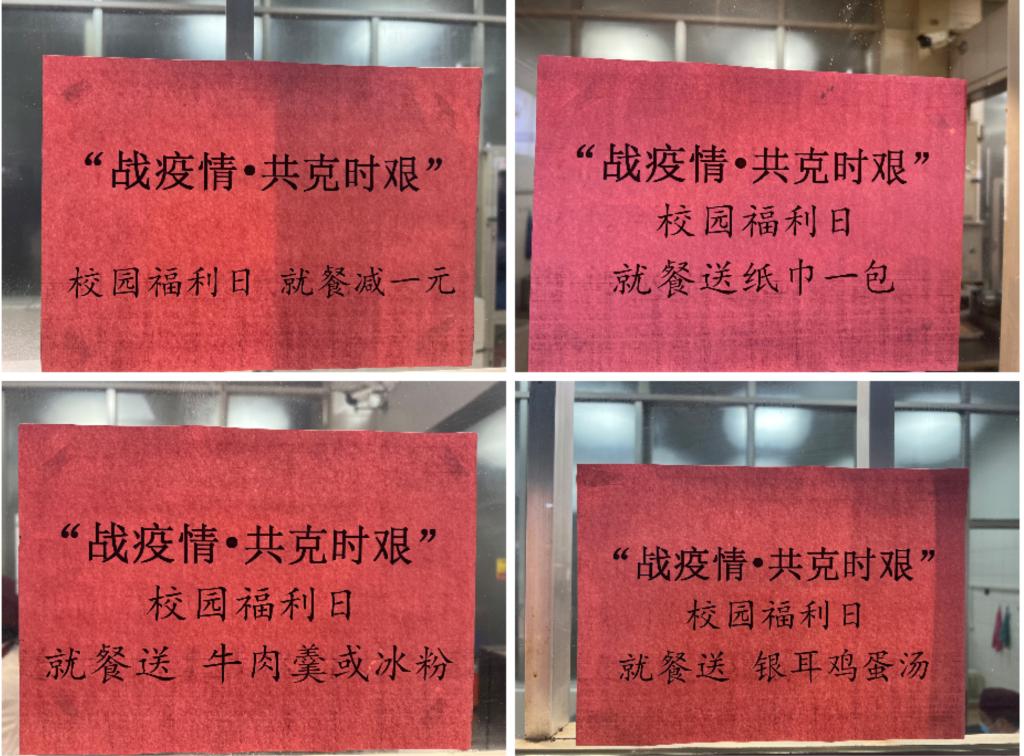 “战疫情·共克时艰”
校园福利日 就餐减一元
“战疫情·共克时艰”
校园福利日
就餐送纸巾一包
“战疫情·共克时艰”
校园福利日
就餐送 牛肉羹或冰粉
“战疫情·共克时艰”
校园福利日
就餐送 银耳鸡蛋汤